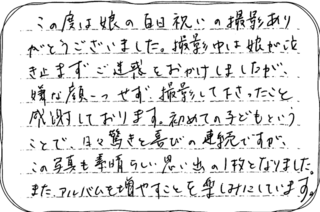 この度は娘の百日祝いの撮影あり
がとうございました。撮影中は娘が泣
き止まずご迷惑をおかけしましたが、
嫌な顔一つせず撮影して下さったこと
感謝しております。初めての子どもという
ことで、日々驚きと喜びの連続ですが、
この写真も素晴らしい思い出の1枚となりました。
また、アルバムを増やすことを楽しみにしています。